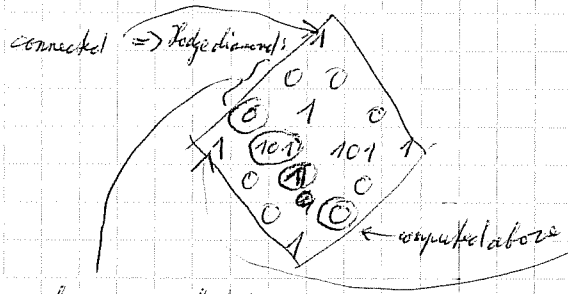 connected => Hodge diamond:
1
0 0
0 1 0
1 101 101 1
0 1 0
0 0
1
← computed above